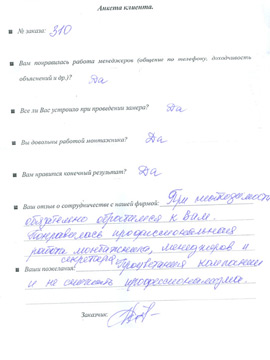 Анкета клиента.
№ заказа: 310
Вам понравилась работа менеджеров (общение по телефону, доходчивость
объяснений и др.)? Да
Все ли Вас устроило при проведении замера? Да
Вы довольны работой монтажника? Да
Вам нравится конечный результат? Да
Ваш отзыв о сотрудничестве с нашей фирмой: При необходимости
обязательно обратимся к Вам.
Понравилась профессиональная
работа монтажника, менеджеров и
секретаря.
Ваши пожелания: Процветания компании
и не снижать профессионализма.
Заказчик: